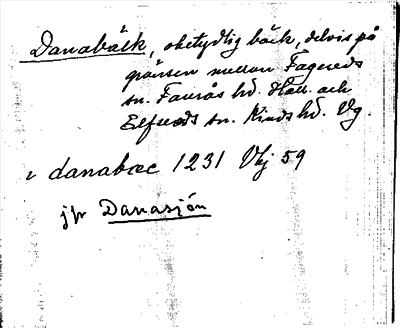 Danabäck, obetydlig bäck, delvis på
gränsen mellan Fagereds
sn. Faurås hd. Hall. och
Elfseds sn. Kinds hd. Vg.
i danabæc 1231 Vhj 59
jfr Danasjön